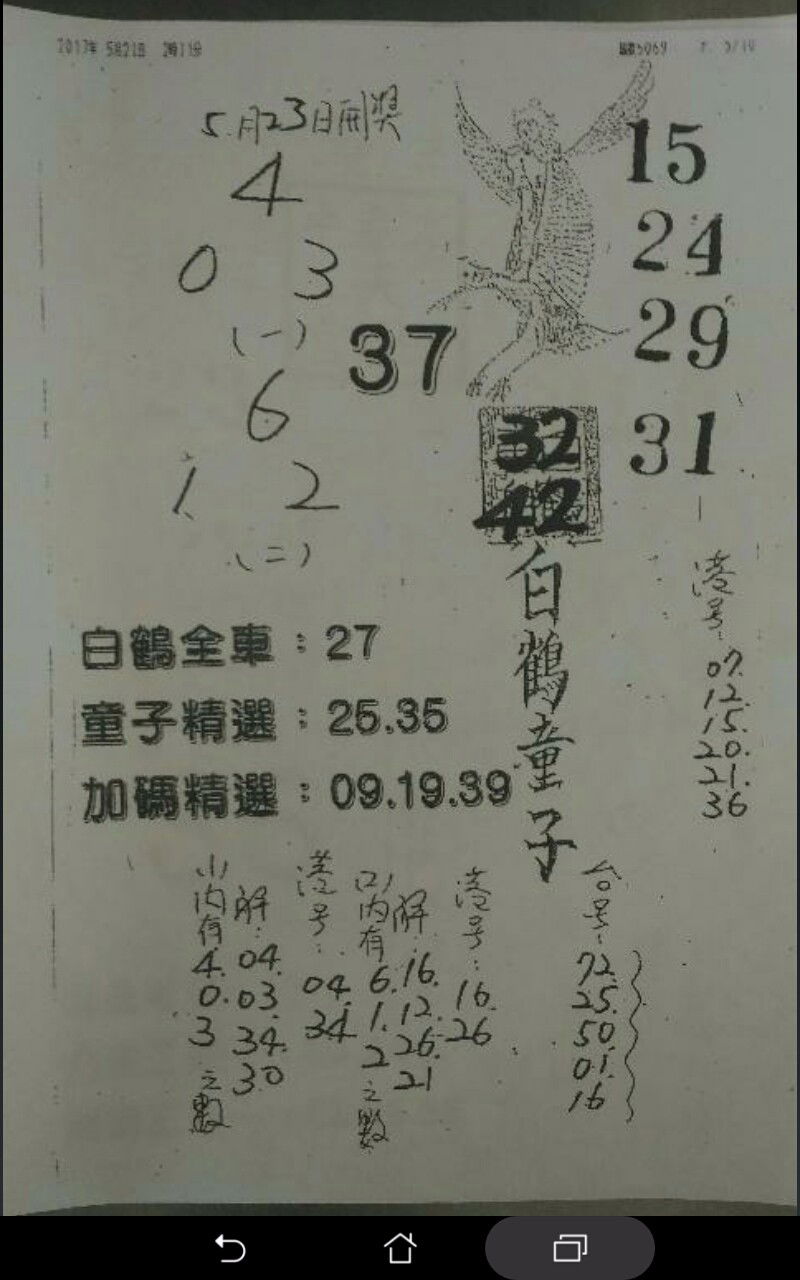 2017年 5月21日 2時11分
5月23日開獎
4
0 3
(一)
6
1 2
(二)
37
15
24
29
31
32
42
白鶴童子
白鶴全車：27
童子精選：25.35
加碼精選：09.19.39
港号：
07.
12.
15.
20.
21.
36
(1)內有
4.
0.
3
之數
解：
04.
03.
34.
30
港号：
04.
34
(2)內有
6.
1.
2
之數
解：
16.
12.
26.
21
港号：
16.
26
台号：
72.
25.
50.
01.
16